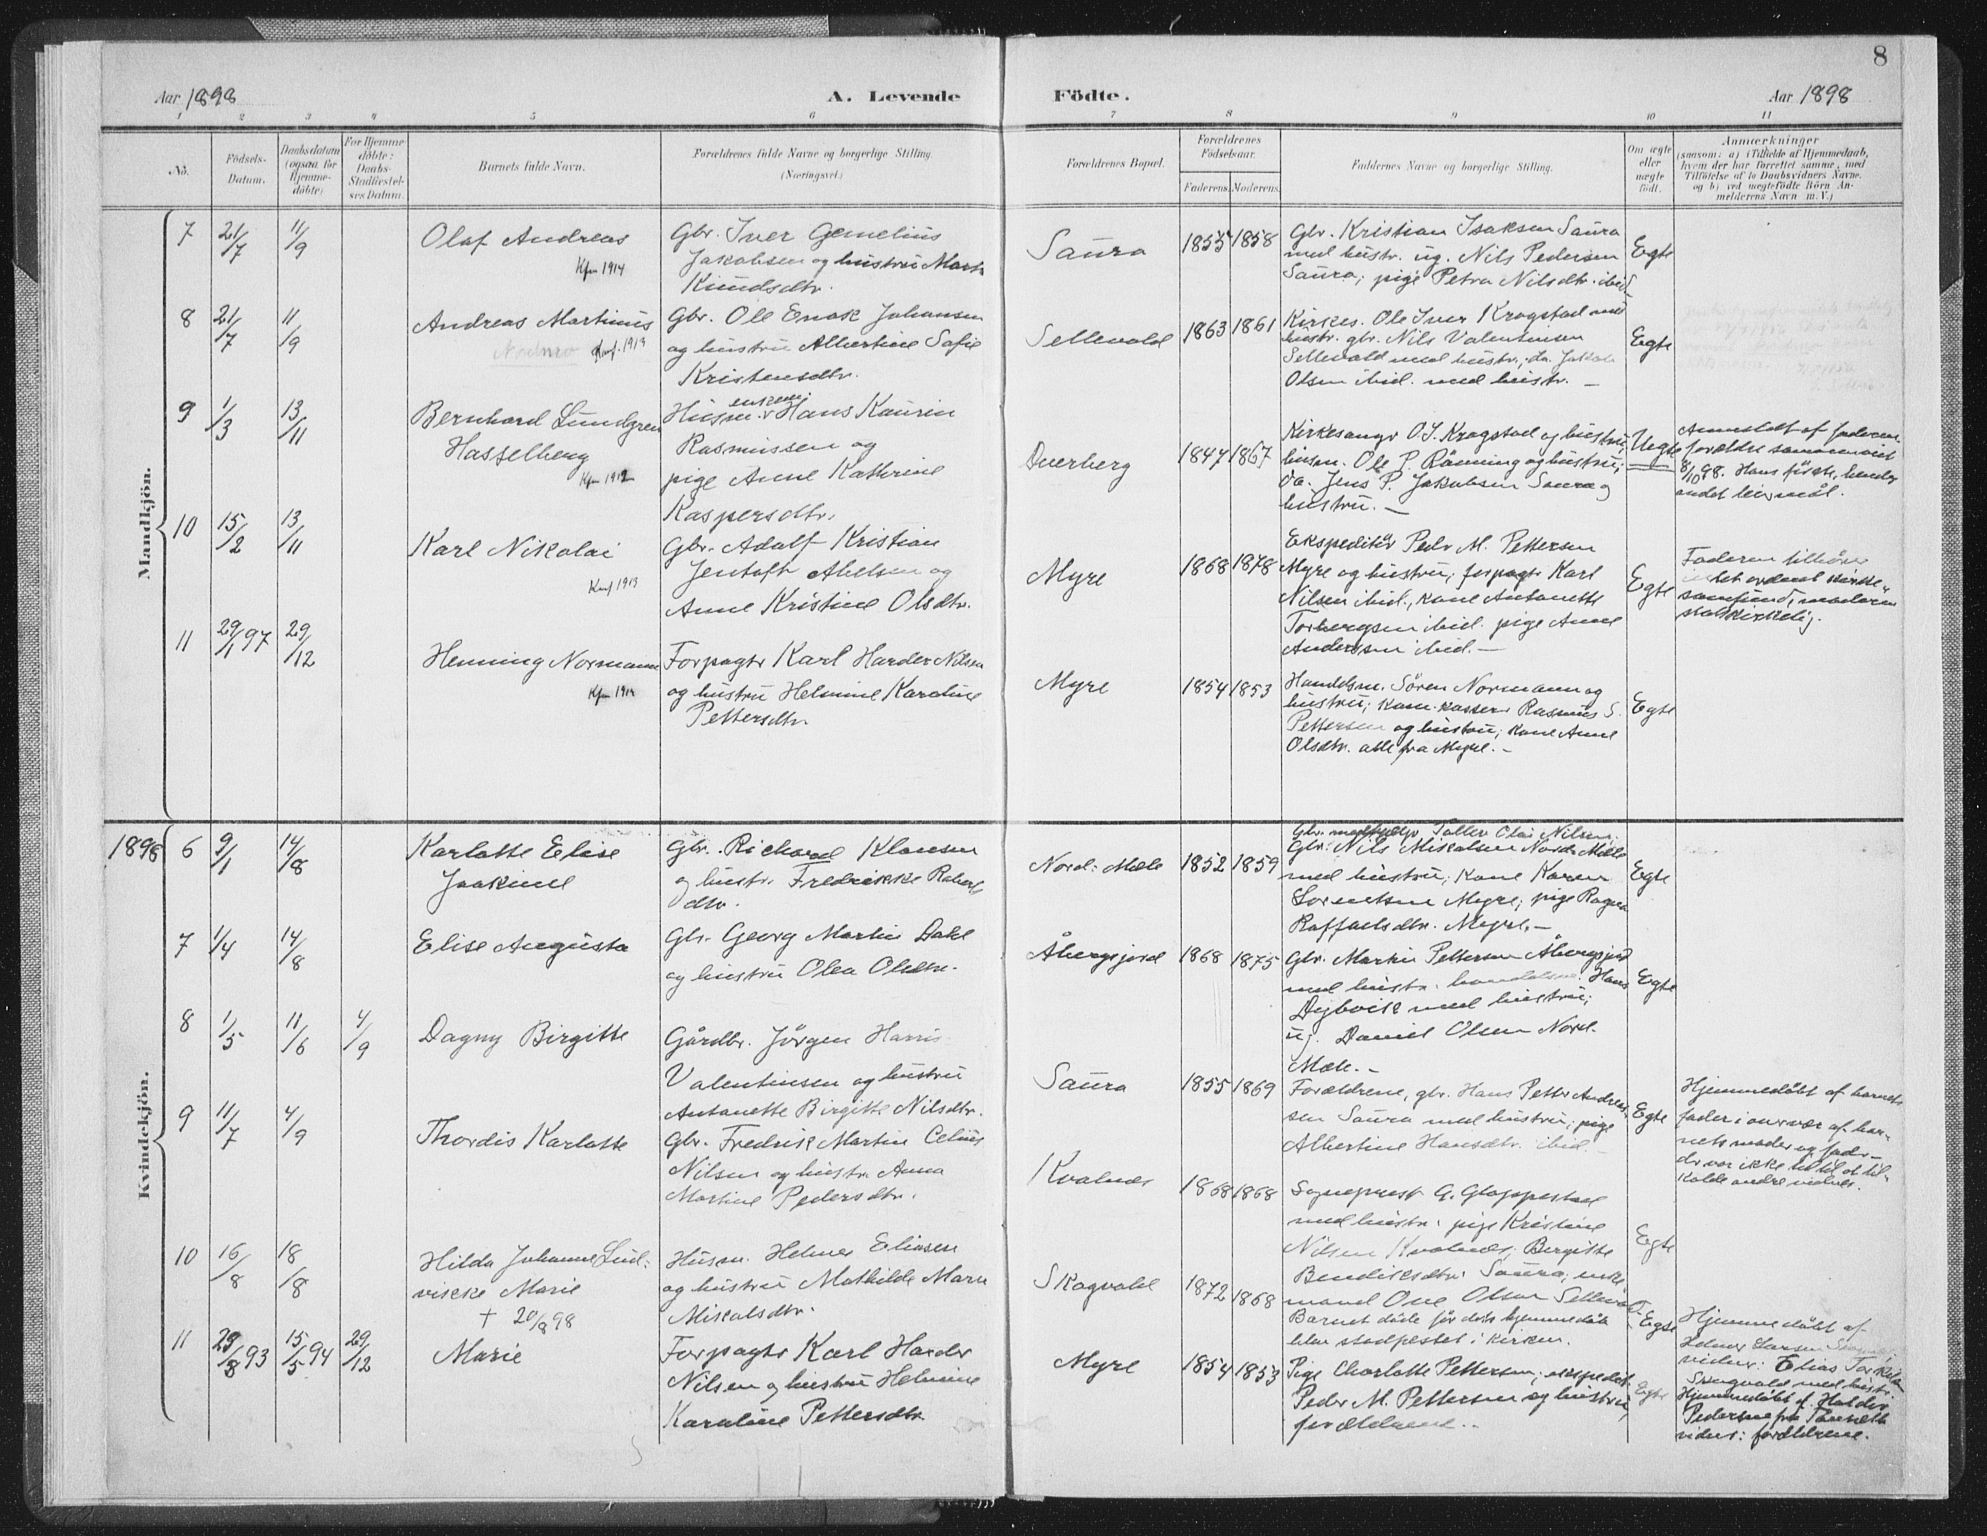 8
Aar 1898
A. Levende
Födte.
Aar 1898
1 2 3 4 5 6 7 8 9 10 11
No.
Födsels-
Datum.
Daabsdatum
(ogsaa for
Hjemme-
döbte)
For Hjemme-
döbte:
Daabs-
Stadfæstel-
ses Datum.
Barnets fulde Navn.
Forældrenes fulde Navne og borgerlige Stilling.
(Næringsvei.)
Forældrenes Bopæl.
Forældrenes
Födselsaar.
Faderens. Moderens.
Faddernes Navne og borgerlige Stilling.
Om ægte
eller
uægte
födt.
Anmærkninger
(saasom: a) i Tilfælde af Hjemmedaab,
hvem der har forrettet samme, med
Tilföielse af to Daabsvidners Navne.
og b) ved uegtefödte Börn An-
melderens Navn m.V.)
Mandkjön.
7 21/7 11/9
Olaf Andreas
Kfm 1914
Gbr. Iver Gemelius
Jakobsen og hustru Marta
Knudsdtr.
Saura
1855 1858
Gbr. Kristian Isaksen Saura
med hustr. ug. Nils Pedersen
Saura; pige Petra Nilsdtr. ibid
Egte
8 21/7 11/9
Andreas Martinus
Konf. 1913
Gbr. Ole Enok Johansen
og hustru Albertine Sofie
Kristensdtr.
Sellevold
1863 1861
Kirkes. Ole Iver Krogstad med
hustr. gbr. Nils Valentinsen
Sellevold med hustr.; do. Jakob
Olsen ibid. med hustr. —
Egte
9 1/3 13/11
Bernhard Lundgren
Hasselberg
Kfm 1912
Husm. enkem. Hans Kaurin
Rasmussen og
pige Anne Kathrine
Kaspersdtr.
Dverberg
1847 1867
Kirkesangr O.I. Krogstad og hustru;
husm. Ole P. Rönning og hustru;
do. Jens P. Jakobsen Saura og
hustru. —
Uegte
Anmeldt af faderen
forældre sammenviet
8/10 98. Hans förste, hendes
andet leiermål.
10 15/2 13/11
Karl Nikolai
Konf 1913
Gbr. Adolf Kristian
Jentoft Abelsen og
Anne Kristine Olsdtr.
Myre
1868 1878
Ekspeditör Peder M. Pettersen
Myre og hustru; forpagtr Karl
Nilsen ibid., kone Antonette
Torbergsen ibid. pige Anne
Andersen ibid. —
Egte
Faderen tilhörer
kirke-
samfund, moderen
statskirkelig.
11 29/1 97 29/12
Henning Normann
Kfm 1914
Forpagtr Karl Harder Nilsen
og hustru Helmine Karoline
Pettersdtr.
Myre
1854 1853
Handelsm. Sören Normann og
hustru; kom. kasserer Rasmus S.
Pettersen og hustru; kone Anne
Olsdtr. alle fra Myre. —
Egte
1898
Kvindekjön.
6 9/1 14/8
Karlotte Elise
Joakime
Gbr. Richard Klausen
og hustr. Fredrikke Roberts
dtr.
Nord: Mæle
1852 1859
Gbr. Toller Olai Nilsen.
Gbr. Nils Mikalsen Nord: Mæle
med hustru; kone Karen
Lorentsen Myre; pige Ragna
Raffaelsdtr. Myre. —
Egte
7 1/4 14/8
Elise Augusta
Gbr. Georg Martin Dahl
og hustru Olea Olsdtr.
Åbergsjord
1868 1875
Gbr. Martin Pettersen Åbergsjord
med hustr. handelsm. Hans
Dybvik med hustru;
uj. Daniel Olsen Nord.
Mæle. —
Egte
8 1/5 11/6 4/9
Dagny Birgitte
Gårdbr. Jörgen Hans
Valentinsen og hustru
Antonette Birgitte Nilsdtr.
Saura
1855 1869
Forældrene, gbr. Hans Petter Andrea-
sen Saura med hustru; pige
Albertine Hansdtr. ibid. —
Egte
Hjemmedöbt af barnets
fader i overvær af bar-
nets moder og fader-
der var ikke tid til at til-
kalde andre vidner.
9 11/7 4/9
Thordis Karlotte
Gbr. Fredrik Martin Celius
Nilsen og hustr. Anna
Martine Pedersdtr.
Kvalnes
1868 1868
Sogneprest G. Gloppestad
med hustr. pige Kristine
Nilsen Kvalnes; Birgitte
Bendiksdtr. Saura; enke
mand Ove Olsen Sellevold
Egte
10 16/8 18/8
Hilda Johanne Lud-
vikke Marie
+ 20/8 98
Husm. Helmer Eliasen
og hustru Mathilde Marie
Mikalsdtr.
Skogvold
1872 1868
Barnet döde för dets hjemmedåb
blev stadfestet i kirken.
Egte
Hjemmedöbt af
vidner: Elias Torkilds
Skogvold med hustr.
11 23/8 93 15/5 94 29/12
Marie
Forpagtr Karl Harder
Nilsen og hustru Helmine
Karoline Pettersdtr.
Myre
1854 1853
Pige Charlotte Pettersen; ekspeditör
Peder M. Pettersen og hustru,
forældrene. —
Egte
Hjemmedöbt af Halder
Pedersen fra
vidner: forældrene.